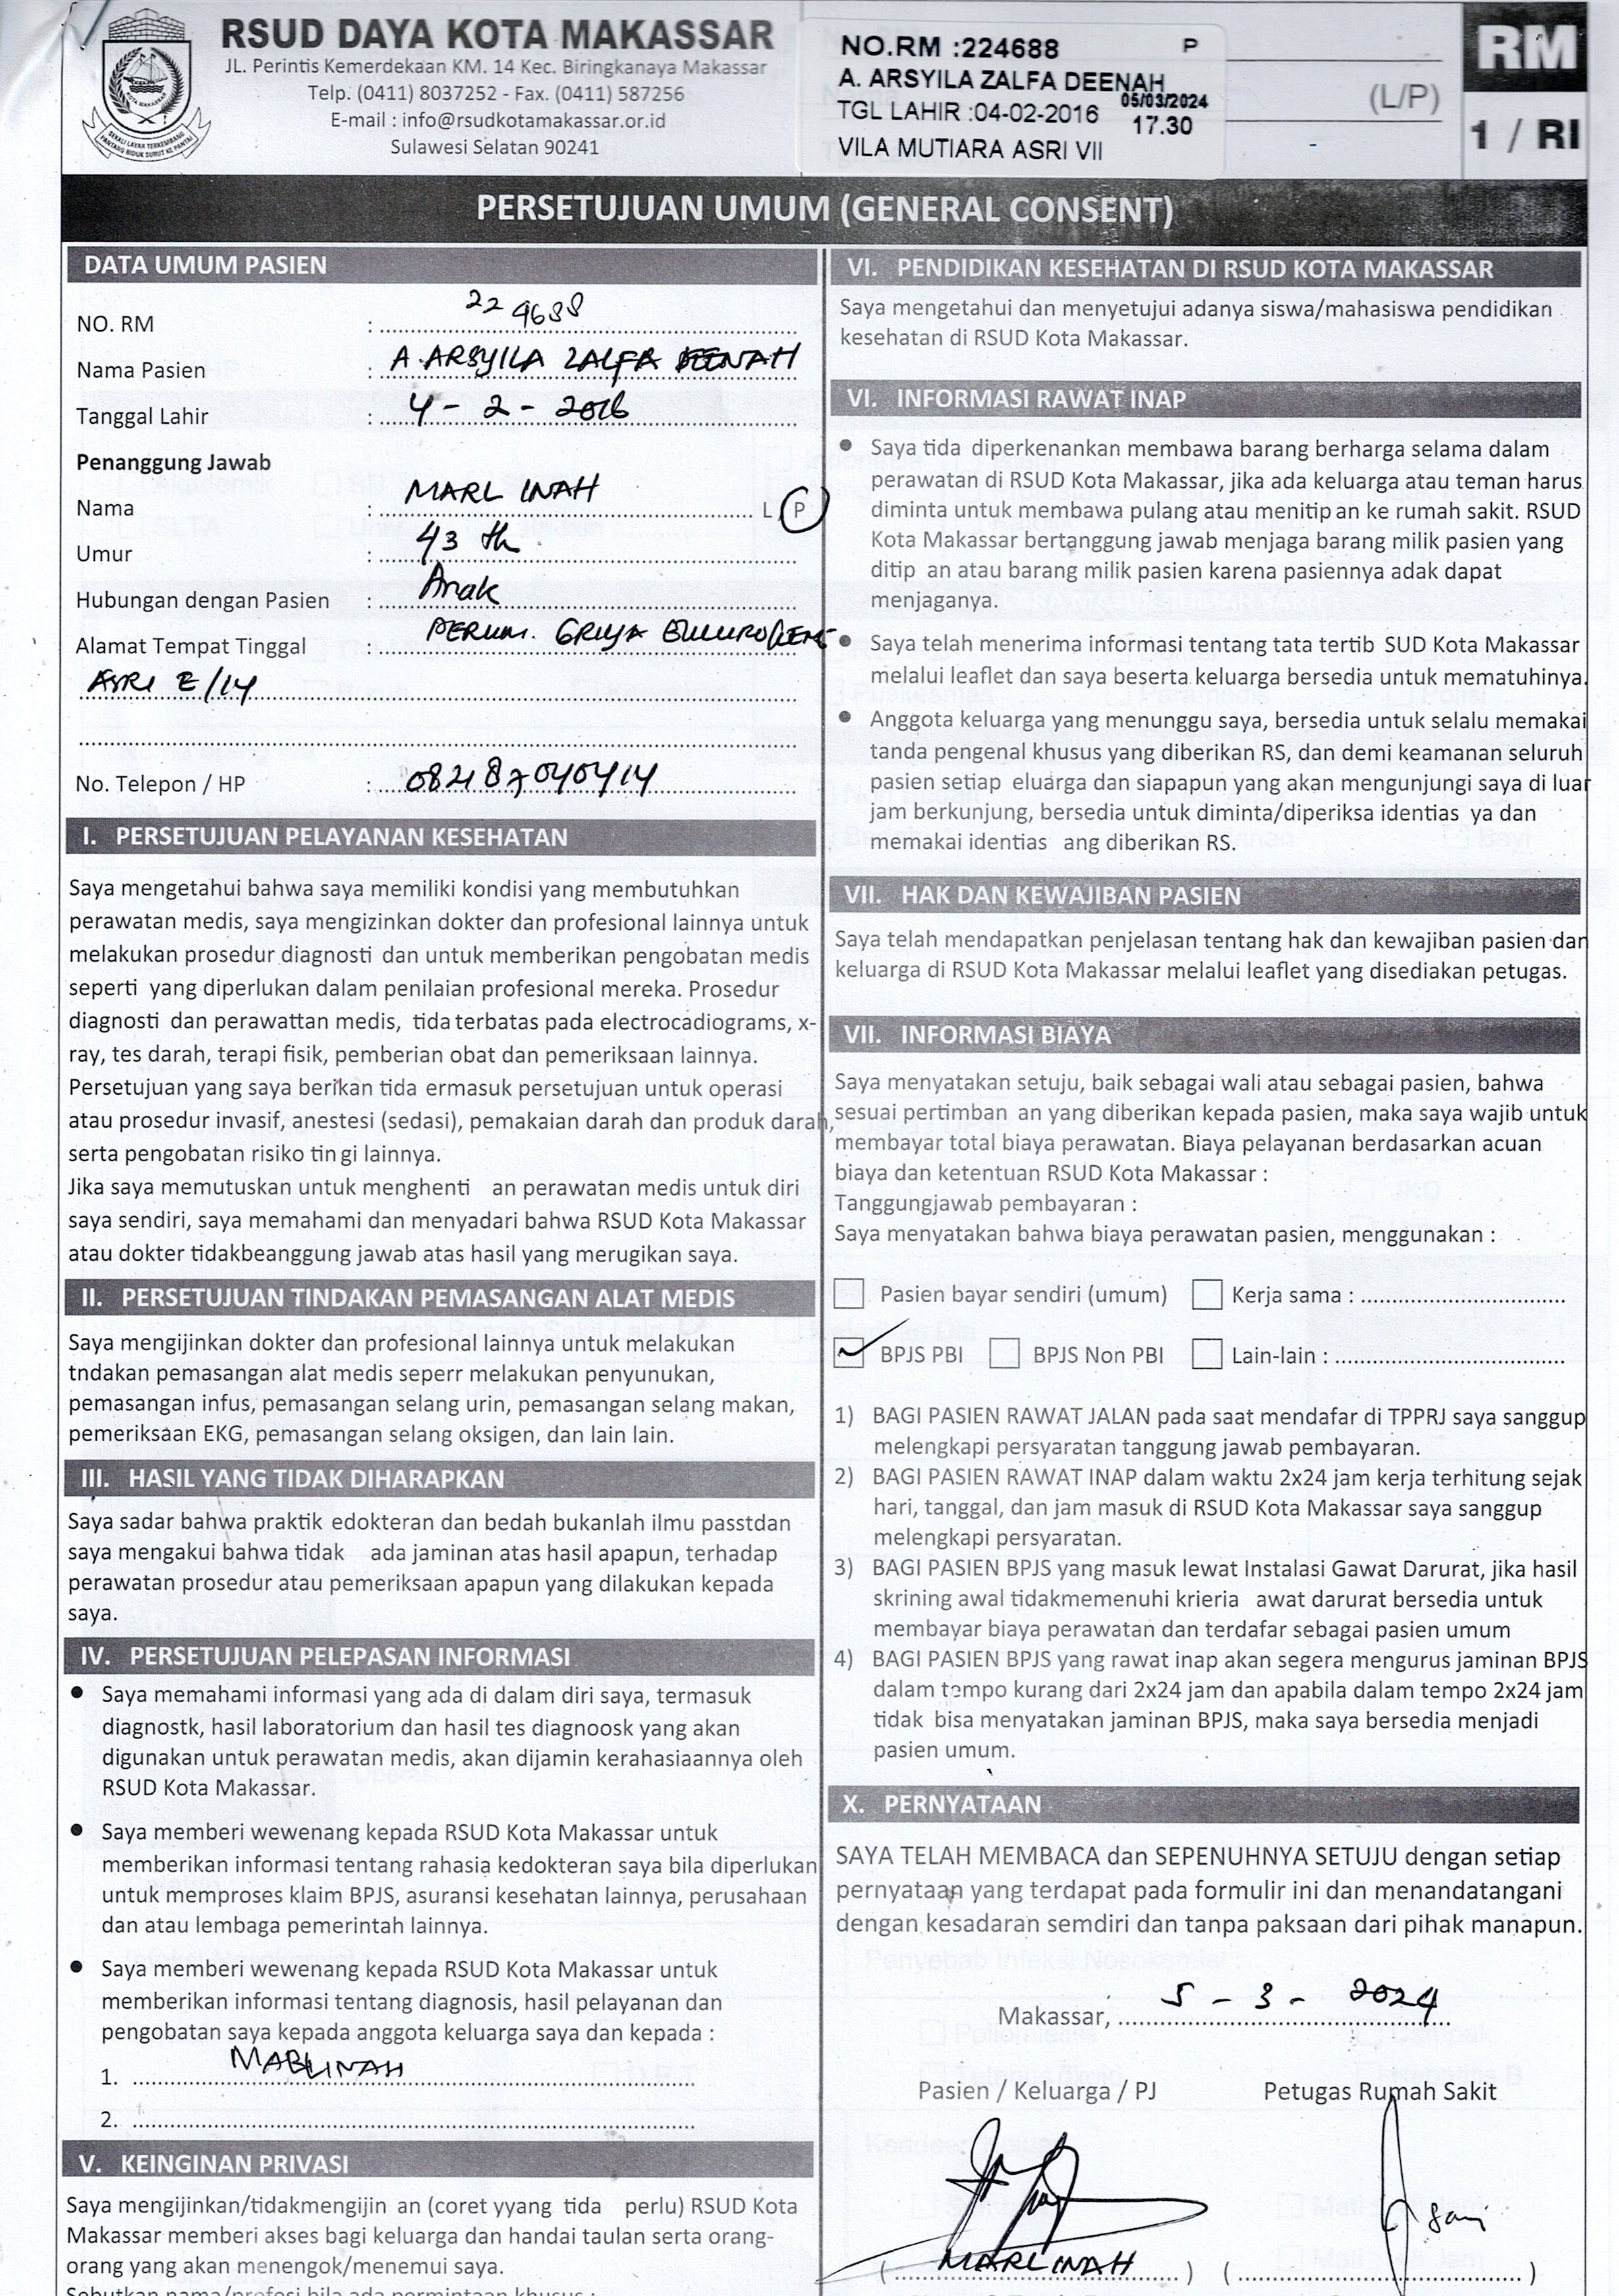 RSUD DAYA KOTA MAKASSAR
JL. Perintis Kemerdekaan KM. 14 Kec. Biringkanaya Makassar
Telp. (0411) 8037252 - Fax. (0411) 587256
E-mail : info@rsudkotamakassar.or.id
Sulawesi Selatan 90241
NO.RM :224688 P
A. ARSYILA ZALFA DEENAH
TGL LAHIR :04-02-2016 05/03/2024 17.30
VILA MUTIARA ASRI VII
(L/P)
RM
1 / RI
PERSETUJUAN UMUM (GENERAL CONSENT)
DATA UMUM PASIEN
NO. RM : 224688
Nama Pasien : A. ARSYILA ZALFA DEENAH
Tanggal Lahir : 4 - 2 - 2016
Penanggung Jawab
Nama : MARLINAH L / P
Umur : 43 th
Hubungan dengan Pasien : Anak
Alamat Tempat Tinggal : PERUM. GRIYA
ASRI E/14
No. Telepon / HP : 082187040414
I. PERSETUJUAN PELAYANAN KESEHATAN
Saya mengetahui bahwa saya memiliki kondisi yang membutuhkan
perawatan medis, saya mengizinkan dokter dan profesional lainnya untuk
melakukan prosedur diagnosti dan untuk memberikan pengobatan medis
seperti yang diperlukan dalam penilaian profesional mereka. Prosedur
diagnosti dan perawattan medis, tida terbatas pada electrocadiograms, x-
ray, tes darah, terapi fisik, pemberian obat dan pemeriksaan lainnya.
Persetujuan yang saya berikan tida ermasuk persetujuan untuk operasi
atau prosedur invasif, anestesi (sedasi), pemakaian darah dan produk darah,
serta pengobatan risiko tin gi lainnya.
Jika saya memutuskan untuk menghenti an perawatan medis untuk diri
saya sendiri, saya memahami dan menyadari bahwa RSUD Kota Makassar
atau dokter tidakbeanggung jawab atas hasil yang merugikan saya.
II. PERSETUJUAN TINDAKAN PEMASANGAN ALAT MEDIS
Saya mengijinkan dokter dan profesional lainnya untuk melakukan
tndakan pemasangan alat medis seperr melakukan penyunukan,
pemasangan infus, pemasangan selang urin, pemasangan selang makan,
pemeriksaan EKG, pemasangan selang oksigen, dan lain lain.
III. HASIL YANG TIDAK DIHARAPKAN
Saya sadar bahwa praktik edokteran dan bedah bukanlah ilmu passtdan
saya mengakui bahwa tidak ada jaminan atas hasil apapun, terhadap
perawatan prosedur atau pemeriksaan apapun yang dilakukan kepada
saya.
IV. PERSETUJUAN PELEPASAN INFORMASI
● Saya memahami informasi yang ada di dalam diri saya, termasuk
diagnostk, hasil laboratorium dan hasil tes diagnoosk yang akan
digunakan untuk perawatan medis, akan dijamin kerahasiaannya oleh
RSUD Kota Makassar.
● Saya memberi wewenang kepada RSUD Kota Makassar untuk
memberikan informasi tentang rahasia kedokteran saya bila diperlukan
untuk memproses klaim BPJS, asuransi kesehatan lainnya, perusahaan
dan atau lembaga pemerintah lainnya.
● Saya memberi wewenang kepada RSUD Kota Makassar untuk
memberikan informasi tentang diagnosis, hasil pelayanan dan
pengobatan saya kepada anggota keluarga saya dan kepada :
1. MARLINAH
2.
V. KEINGINAN PRIVASI
Saya mengijinkan/tidakmengijin an (coret yyang tida perlu) RSUD Kota
Makassar memberi akses bagi keluarga dan handai taulan serta orang-
orang yang akan menengok/menemui saya.
Sebutkan nama/profesi bila ada permintaan khusus :
VI. PENDIDIKAN KESEHATAN DI RSUD KOTA MAKASSAR
Saya mengetahui dan menyetujui adanya siswa/mahasiswa pendidikan
kesehatan di RSUD Kota Makassar.
VI. INFORMASI RAWAT INAP
● Saya tida diperkenankan membawa barang berharga selama dalam
perawatan di RSUD Kota Makassar, jika ada keluarga atau teman harus
diminta untuk membawa pulang atau menitip an ke rumah sakit. RSUD
Kota Makassar bertanggung jawab menjaga barang milik pasien yang
ditip an atau barang milik pasien karena pasiennya adak dapat
menjaganya.
● Saya telah menerima informasi tentang tata tertib SUD Kota Makassar
melalui leaflet dan saya beserta keluarga bersedia untuk mematuhinya.
● Anggota keluarga yang menunggu saya, bersedia untuk selalu memakai
tanda pengenal khusus yang diberikan RS, dan demi keamanan seluruh
pasien setiap eluarga dan siapapun yang akan mengunjungi saya di luar
jam berkunjung, bersedia untuk diminta/diperiksa identias ya dan
memakai identias ang diberikan RS.
VII. HAK DAN KEWAJIBAN PASIEN
Saya telah mendapatkan penjelasan tentang hak dan kewajiban pasien dan
keluarga di RSUD Kota Makassar melalui leaflet yang disediakan petugas.
VII. INFORMASI BIAYA
Saya menyatakan setuju, baik sebagai wali atau sebagai pasien, bahwa
sesuai pertimban an yang diberikan kepada pasien, maka saya wajib untuk
membayar total biaya perawatan. Biaya pelayanan berdasarkan acuan
biaya dan ketentuan RSUD Kota Makassar :
Tanggungjawab pembayaran :
Saya menyatakan bahwa biaya perawatan pasien, menggunakan :
☐ Pasien bayar sendiri (umum) ☐ Kerja sama :
☑ BPJS PBI ☐ BPJS Non PBI ☐ Lain-lain :
1) BAGI PASIEN RAWAT JALAN pada saat mendafar di TPPRJ saya sanggup
melengkapi persyaratan tanggung jawab pembayaran.
2) BAGI PASIEN RAWAT INAP dalam waktu 2x24 jam kerja terhitung sejak
hari, tanggal, dan jam masuk di RSUD Kota Makassar saya sanggup
melengkapi persyaratan.
3) BAGI PASIEN BPJS yang masuk lewat Instalasi Gawat Darurat, jika hasil
skrining awal tidakmemenuhi krieria awat darurat bersedia untuk
membayar biaya perawatan dan terdafar sebagai pasien umum
4) BAGI PASIEN BPJS yang rawat inap akan segera mengurus jaminan BPJS
dalam tempo kurang dari 2x24 jam dan apabila dalam tempo 2x24 jam
tidak bisa menyatakan jaminan BPJS, maka saya bersedia menjadi
pasien umum.
X. PERNYATAAN
SAYA TELAH MEMBACA dan SEPENUHNYA SETUJU dengan setiap
pernyataan yang terdapat pada formulir ini dan menandatangani
dengan kesadaran semdiri dan tanpa paksaan dari pihak manapun.
Makassar, 5 - 3 - 2024
Pasien / Keluarga / PJ Petugas Rumah Sakit
( MARLINAH ) ( )